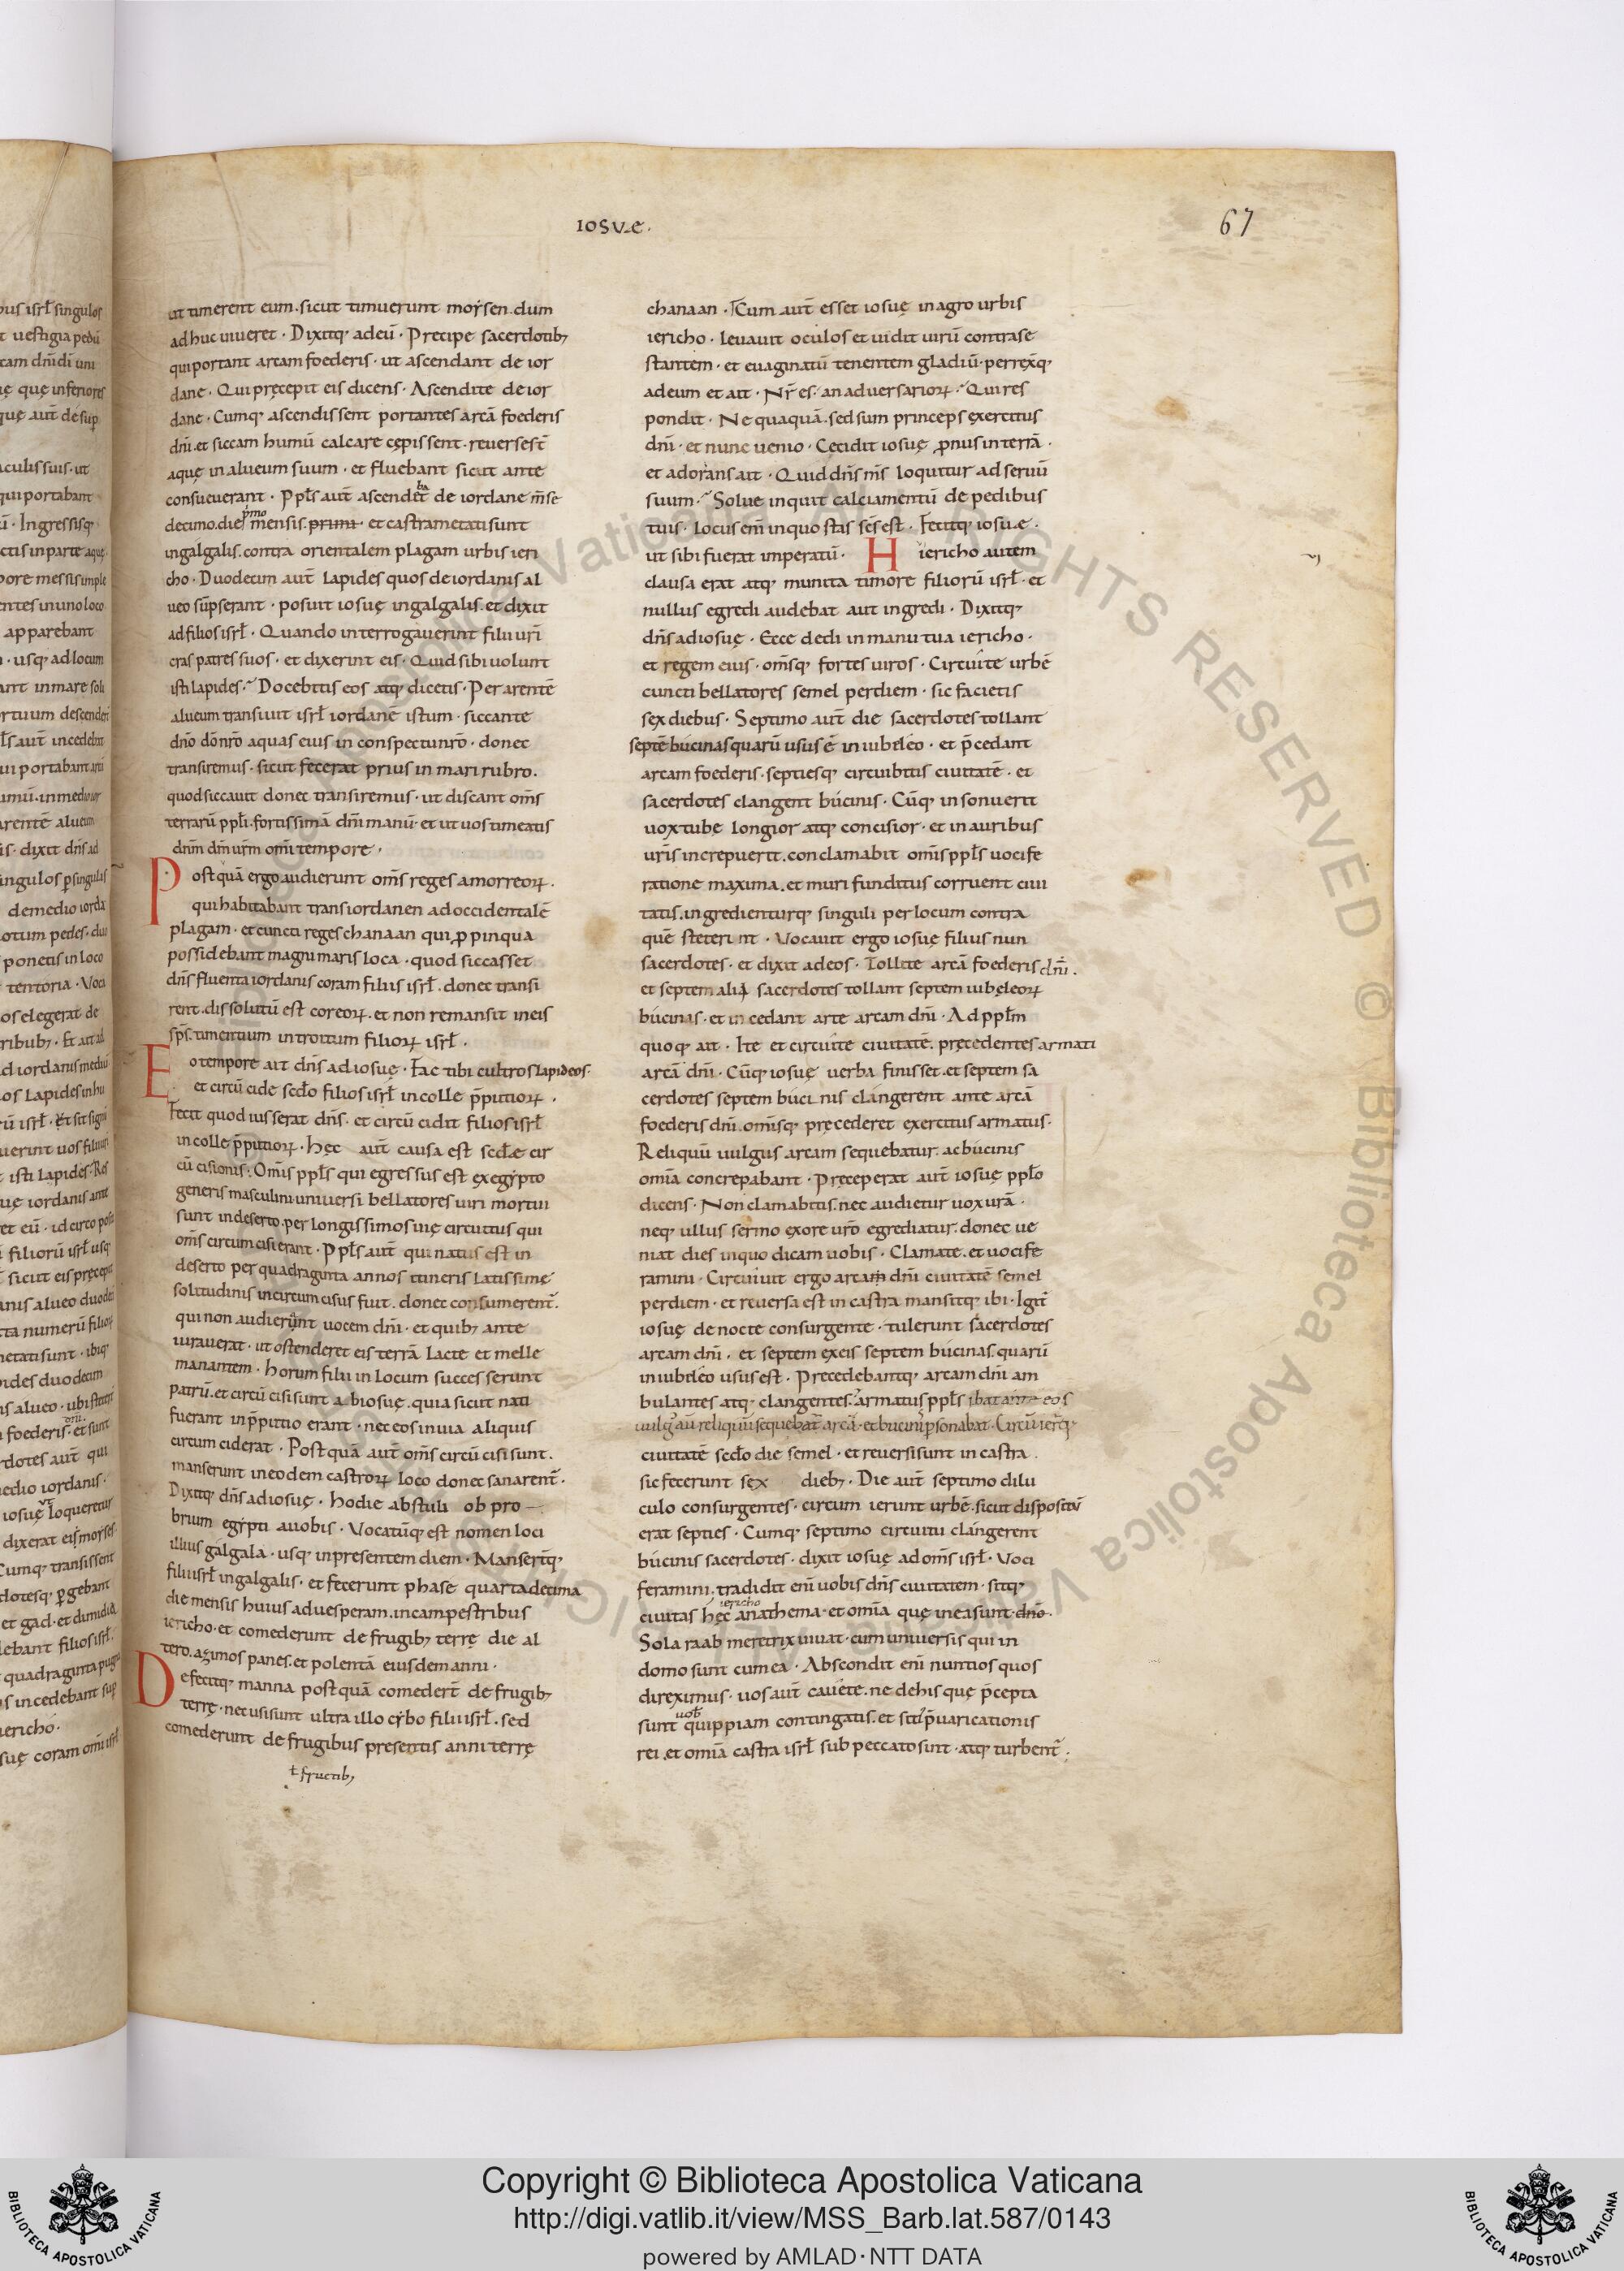 IOSVE·
67
ut timerent eum. sicut timuerunt moẏsen. dum
adhuc uiueret · Dixitq; adeū · Precipe sacerdotib;
qui portant arcam foederis · ut ascendant de ior
dane · Qui pręcepit eis dicens · Ascendite de ior
dane · Cumq; ascendissent portantes arcā foederis
dn̄i. et siccam humū calcare cępissent. reuersęst̄
aquę in alueum suum · et fluebant sicut ante
consueuerant · Ppl̄s aut̄ ascendet̄ de iordane m̄se
decimo. die mensis primi et castrametati sunt
ingalgalis. contra orientalem plagam urbis ieri
cho · Duodecim aut̄ lapides quos de iordanis al
ueo sūpserant · posuit iosuę ingalgalis. et dixit
ad filios isrl̄ · Quando interrogauerint filii ur̄i
cras patres suos · et dixerint eis · Quid sibi uolunt
isti lapides · Docebitis eos atq; dicetis · Per arentē
alueum transiuit isrl̄ iordanē istum · siccante
dn̄o dōnr̄o aquas eius in conspectu nr̄o · donec
transiremus · sicut fecerat prius in mari rubro.
quod siccauit donec transiremus · ut discant om̄s
terrarū ppl̄i. fortissimā dn̄i manū · et ut uos timeatis
dn̄m dm̄ ur̄m omi tempore ·
Post quā ergo audierunt om̄s reges amorreoꝝ.
qui habitabant transiordanen ad occidentalē
plagam · et cuncti reges chanaan qui ꝓpinqua
possidebant magni maris loca · quod siccasset
dn̄s fluenta iordanis coram filiis isrl̄. donec transi
rent. dissolutū est cor eoꝝ. et non remansit in eis
sp̄s. timentium introitum filioꝝ isrl̄ ·
Eo tempore ait dn̄s ad iosuę · Fac tibi cultros lapideos·
et circū cide scdo filios isrl̄ in colle p̄putioꝝ ·
Fecit quod iusserat dn̄s · et circū cidit filios isrl̄
in colle p̄putioꝝ · hęc aut̄ causa est scdę cir
cū cisionis · Om̄is ppl̄s qui egressus est ex egẏpto
generis masculini uniuersi bellatores uiri mortui
sunt in deserto. per longissimos uię circuitus qui
om̄s circumcisi erant · Ppl̄s aut̄ qui natus est in
deserto per quadraginta annos itineris latissimę
solitudinis incircumcisus fuit. donec consumerent̄.
qui non audierunt uocem dn̄i · et quib; ante
iurauerat · ut ostenderet eis terrā lacte et melle
manantem · horum filii in locum successerunt
patrū. et circū cisi sunt ab iosuę. quia sicut nati
fuerant in p̄putio erant · nec eos in uia aliquis
circum ciderat · Post quā aut̄ om̄s circū cisi sunt.
manserunt in eodem castroꝝ loco donec sanarent̄ ·
Dixitq; dn̄s ad iosuę · hodie abstuli ob pro
brium egẏpti auobis · Vocatūq; est nomen loci
illius galgala · usq; in presentem diem · Manserūtq;
filii isrl̄ in galgalis · et fecerunt phase quarta decima
die mensis huius ad uesperam. in campestribus
iericho · et comederunt de frugib; terrę die al
tero. azimos panes. et polentā eiusdem anni ·
Defecitq; manna post quā comeder̄t de frugib;
terrę · nec usi sunt ultra illo cẏbo filii isrl̄. sed
comederunt de frugibus presentis anni terrę
ł fructib;
chanaan · Cum aut̄ esset iosuę in agro urbis
iericho · leuauit oculos et uidit uirū contra se
stantem · et euaginatū tenentem gladiū · perrexq;
ad eum et ait · Nr̄ es · an aduersarioꝝ · Qui res
pondit · Nequaquā. sed sum princeps exercitus
dn̄i · et nunc uenio · Cecidit iosuę ꝓnus in terrā ·
et adorans ait · Quid dn̄s m̄s loquitur ad seruū
suum · Solue inquit calciamentū de pedibus
tuis · locus em̄ in quo stas sc̄s est · Fecitq; iosu.e.
ut sibi fuerat imperatū · H iericho autem
clausa erat atq; munita timore filiorū isrl̄ · et
nullus egredi audebat aut ingredi · Dixitq;
dn̄s ad iosuę · Ecce dedi in manu tua iericho ·
et regem eius · om̄sq; fortes uiros · Circuite urbē
cuncti bellatores semel per diem · sic facietis
sex diebus · Septimo aut̄ die sacerdotes tollant
septē bucinas quarū usus ē in iubileo · et p̄cedant
arcam foederis. septiesq; circuibitis ciuitatē · et
sacerdotes clangent bucinis · Cūq; insonuerit
uox tubę longior atq; concisior · et in auribus
ur̄is increpuerit. conclamabit om̄is ppl̄s uocife
ratione maxima. et muri funditus corruent ciui
tatis. ingredienturq; singuli per locum contra
quē steterint · Vocauit ergo iosuę filius nun
sacerdotes · et dixit ad eos · Tollite arcā foederis dn̄i.
et septem alii sacerdotes tollant septem iubęleoꝝ
bucinas · et incedant ante arcam dn̄i · Ad ppl̄m
quoq; ait · Ite et circuite ciuitatē. pręcedentes armati
arcā dn̄i · Cūq; iosuę uerba finisset. et septem sa
cerdotes septem bucinis clangerent ante arcā
foederis dn̄i. om̄isq; pręcederet exercitus armatus ·
Reliquū uulgus arcam sequebatur. ac bucinis
om̄ia concrepabant · Pręceperat aut̄ iosuę ppl̄o
dicens · Non clamabitis. nec audietur uox ur̄a ·
neq; ullus sermo ex ore ur̄o egrediatur. donec ue
niat dies in quo dicam uobis · Clamate. et uocife
ramini · Circuiuit ergo arcam dn̄i ciuitatē semel
per diem · et reuersa est in castra mansitq; ibi · Igit̄
iosuę de nocte consurgente · tulerunt sacerdotes
arcam dn̄i · et septem ex eis septem bucinas. quarū
in iubileo usus est · Precedebantq; arcam dn̄i am
bulantes atq; clangentes. armatus ppl̄s ibat ante eos
uulg; aū reliquū sequebat̄ arcā · et bucinis psonabat · Circūier̄q;
ciuitatē scdo die semel · et reuersi sunt in castra.
sic fecerunt sex dieb; · Die aut̄ septimo dilu
culo consurgentes · circum ierunt urbē. sicut dispositū
erat septies · Cumq; septimo circuitu clangerent
bucinis sacerdotes · dixit iosuę ad om̄s isrl̄ · Voci
feramini. tradidit eni uobis dn̄s ciuitatem · sitq;
iericho
ciuitas hęc anathema · et om̄ia quę in ea sunt dn̄o·
Sola raab meretrix uiuat · cum uniuersis qui in
domo sunt cum ea · Abscondit eni nuntios quos
direximus · uos aut̄ cauete. ne de his quę p̄cepta
uob̄
sunt quippiam contingatis. et sitis p̄uaricationis
rei. et om̄ia castra isrl̄ sub peccato sint · atq; turbent̄ ·
Copyright © Biblioteca Apostolica Vaticana
http://digi.vatlib.it/view/MSS_Barb.lat.587/0143
powered by AMLAD·NTT DATA
BIBLIOTECA APOSTOLICA VATICANA
BIBLIOTECA APOSTOLICA VATICANA